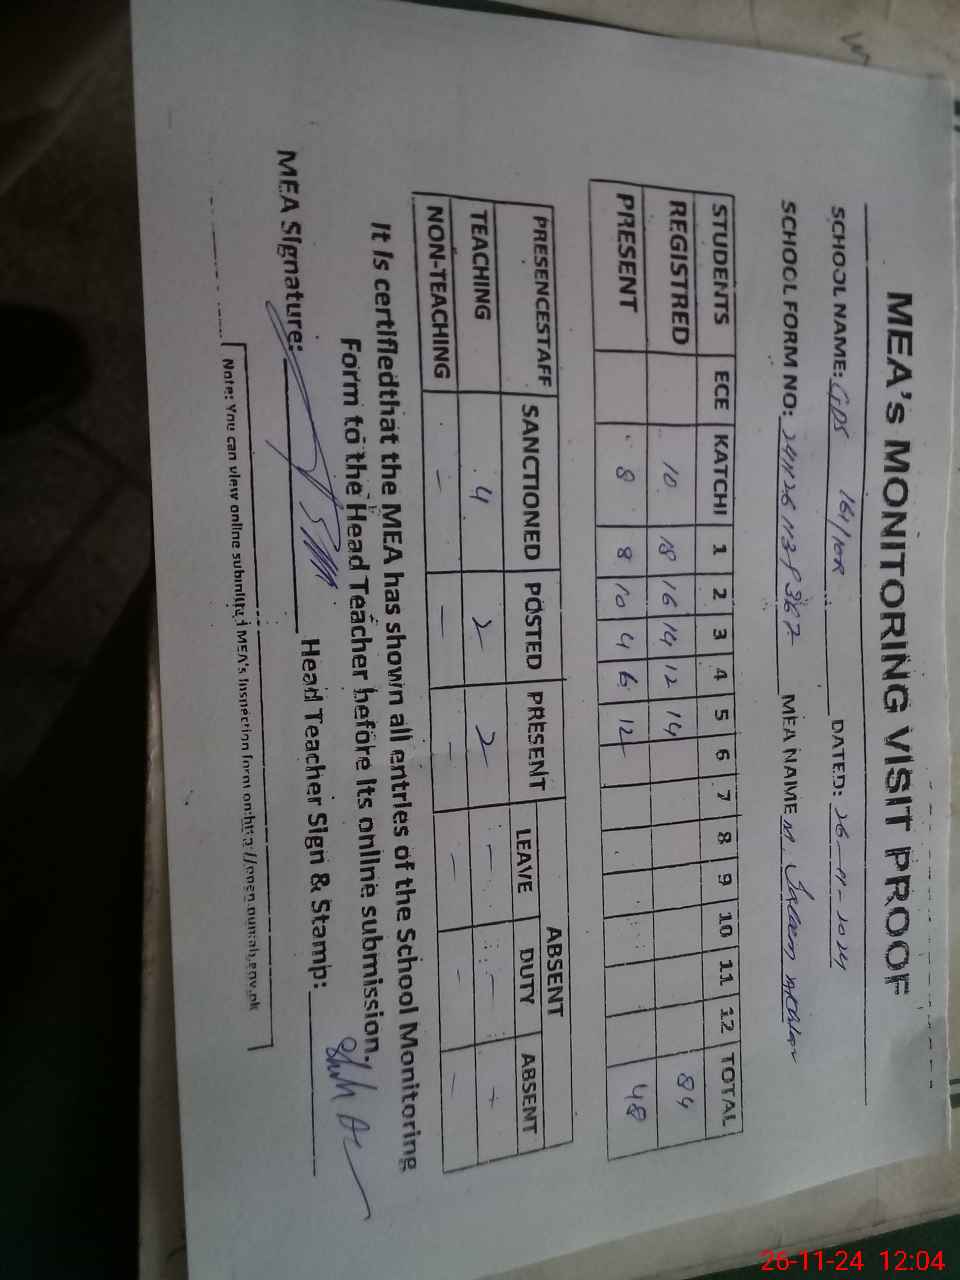 MEA's MONITORING VISIT PROOF
SCHOOL NAME: GPS 161/10R DATED: 26-11-2024
SCHOOL FORM NO: MEA NAME M
STUDENTS ECE KATCHI 1 2 3 4 5 6 7 8 9 10 11 12 TOTAL
REGISTRED 10 18 16 14 12 14 84
PRESENT 8 8 10 4 6 12 48
PRESENCESTAFF SANCTIONED POSTED PRESENT ABSENT
LEAVE DUTY ABSENT
TEACHING 4 2 2 - -
NON-TEACHING - - - - - -
It is certifiedthat the MEA has shown all entries of the School Monitoring
Form to the Head Teacher before its online submission.
MEA Signature: Head Teacher Sign & Stamp:
Note: You can view online submitted MEA's Inspection form on
26-11-24 12:04